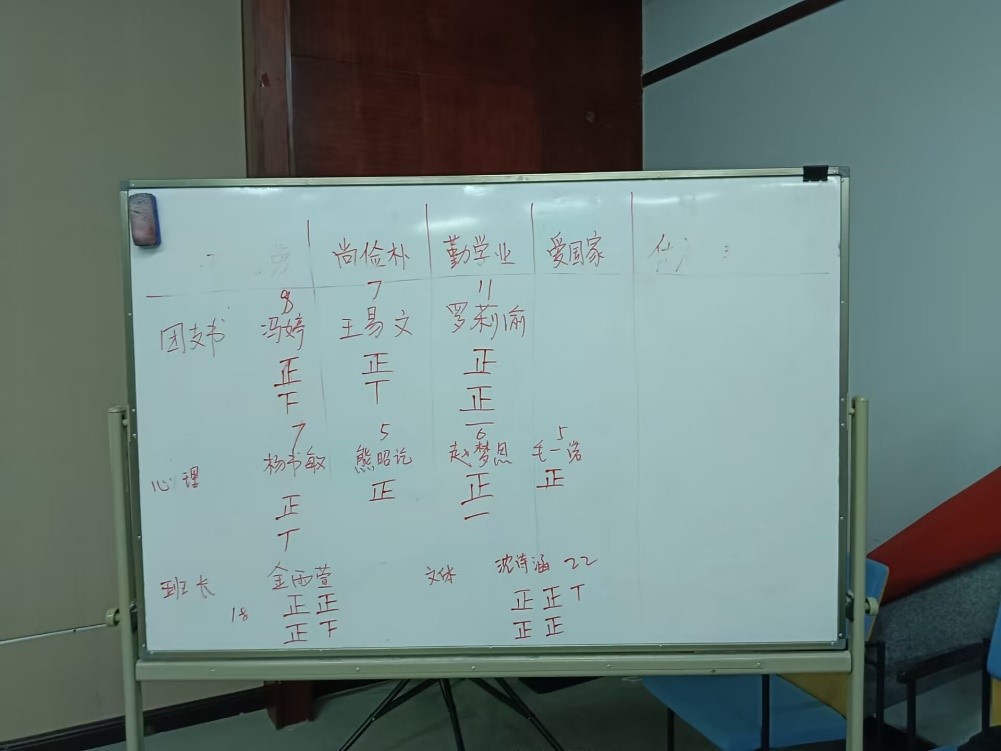 尚俭朴 勤学业 爱国家
8 7 11
团支书 冯婷 王易文 罗莉渝
正 正 正
下 丅 正
一
7 5 6 5
心理 杨书敏 熊昭 赵梦恩 毛一
正 正 正 正
丅 一
班长 金西萱 文体 沈诗涵 22
18 正正 正正丅
正下 正正